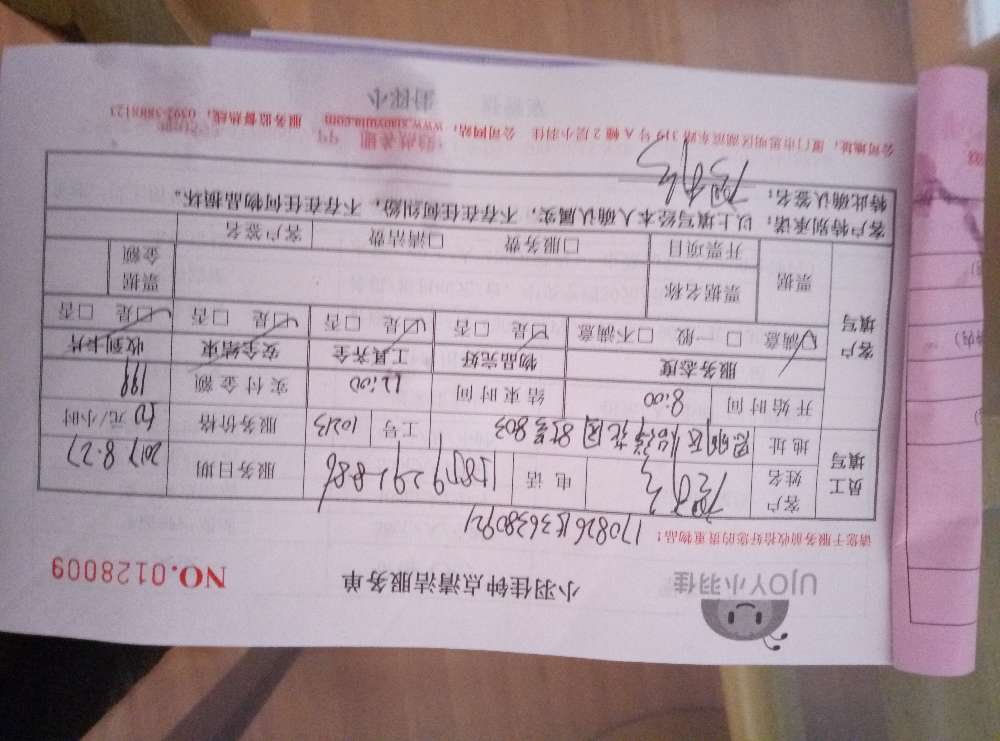 UJOY小羽佳
小羽佳钟点清洁服务单
NO.0128009
请您于服务前收拾好您的贵重物品!
员工填写
客户姓名
电话
服务日期 2017.8.27
地址 思明区 花园 803
工号 10213
服务价格 50 元/小时
开始时间 8:00 结束时间 12:00 实付金额 199
客户填写
服务态度 物品完好 工具齐全 安全结束 收到卡片
☑满意 □一般 □不满意 ☑是 □否 ☑是 □否 ☑是 □否 ☑是 □否
票据
票据名称
票据金额
开票项目 □服务费 □清洁费 客户签名
客户特别承诺:以上填写经本人确认属实,不存在任何纠纷,不存在任何物品损坏。
特此确认签名:
公司地址:厦门市思明区湖滨东路319号A幢2层小羽佳 公司网站:www.xiaoyujia.com 服务监督热线:0592-5888123